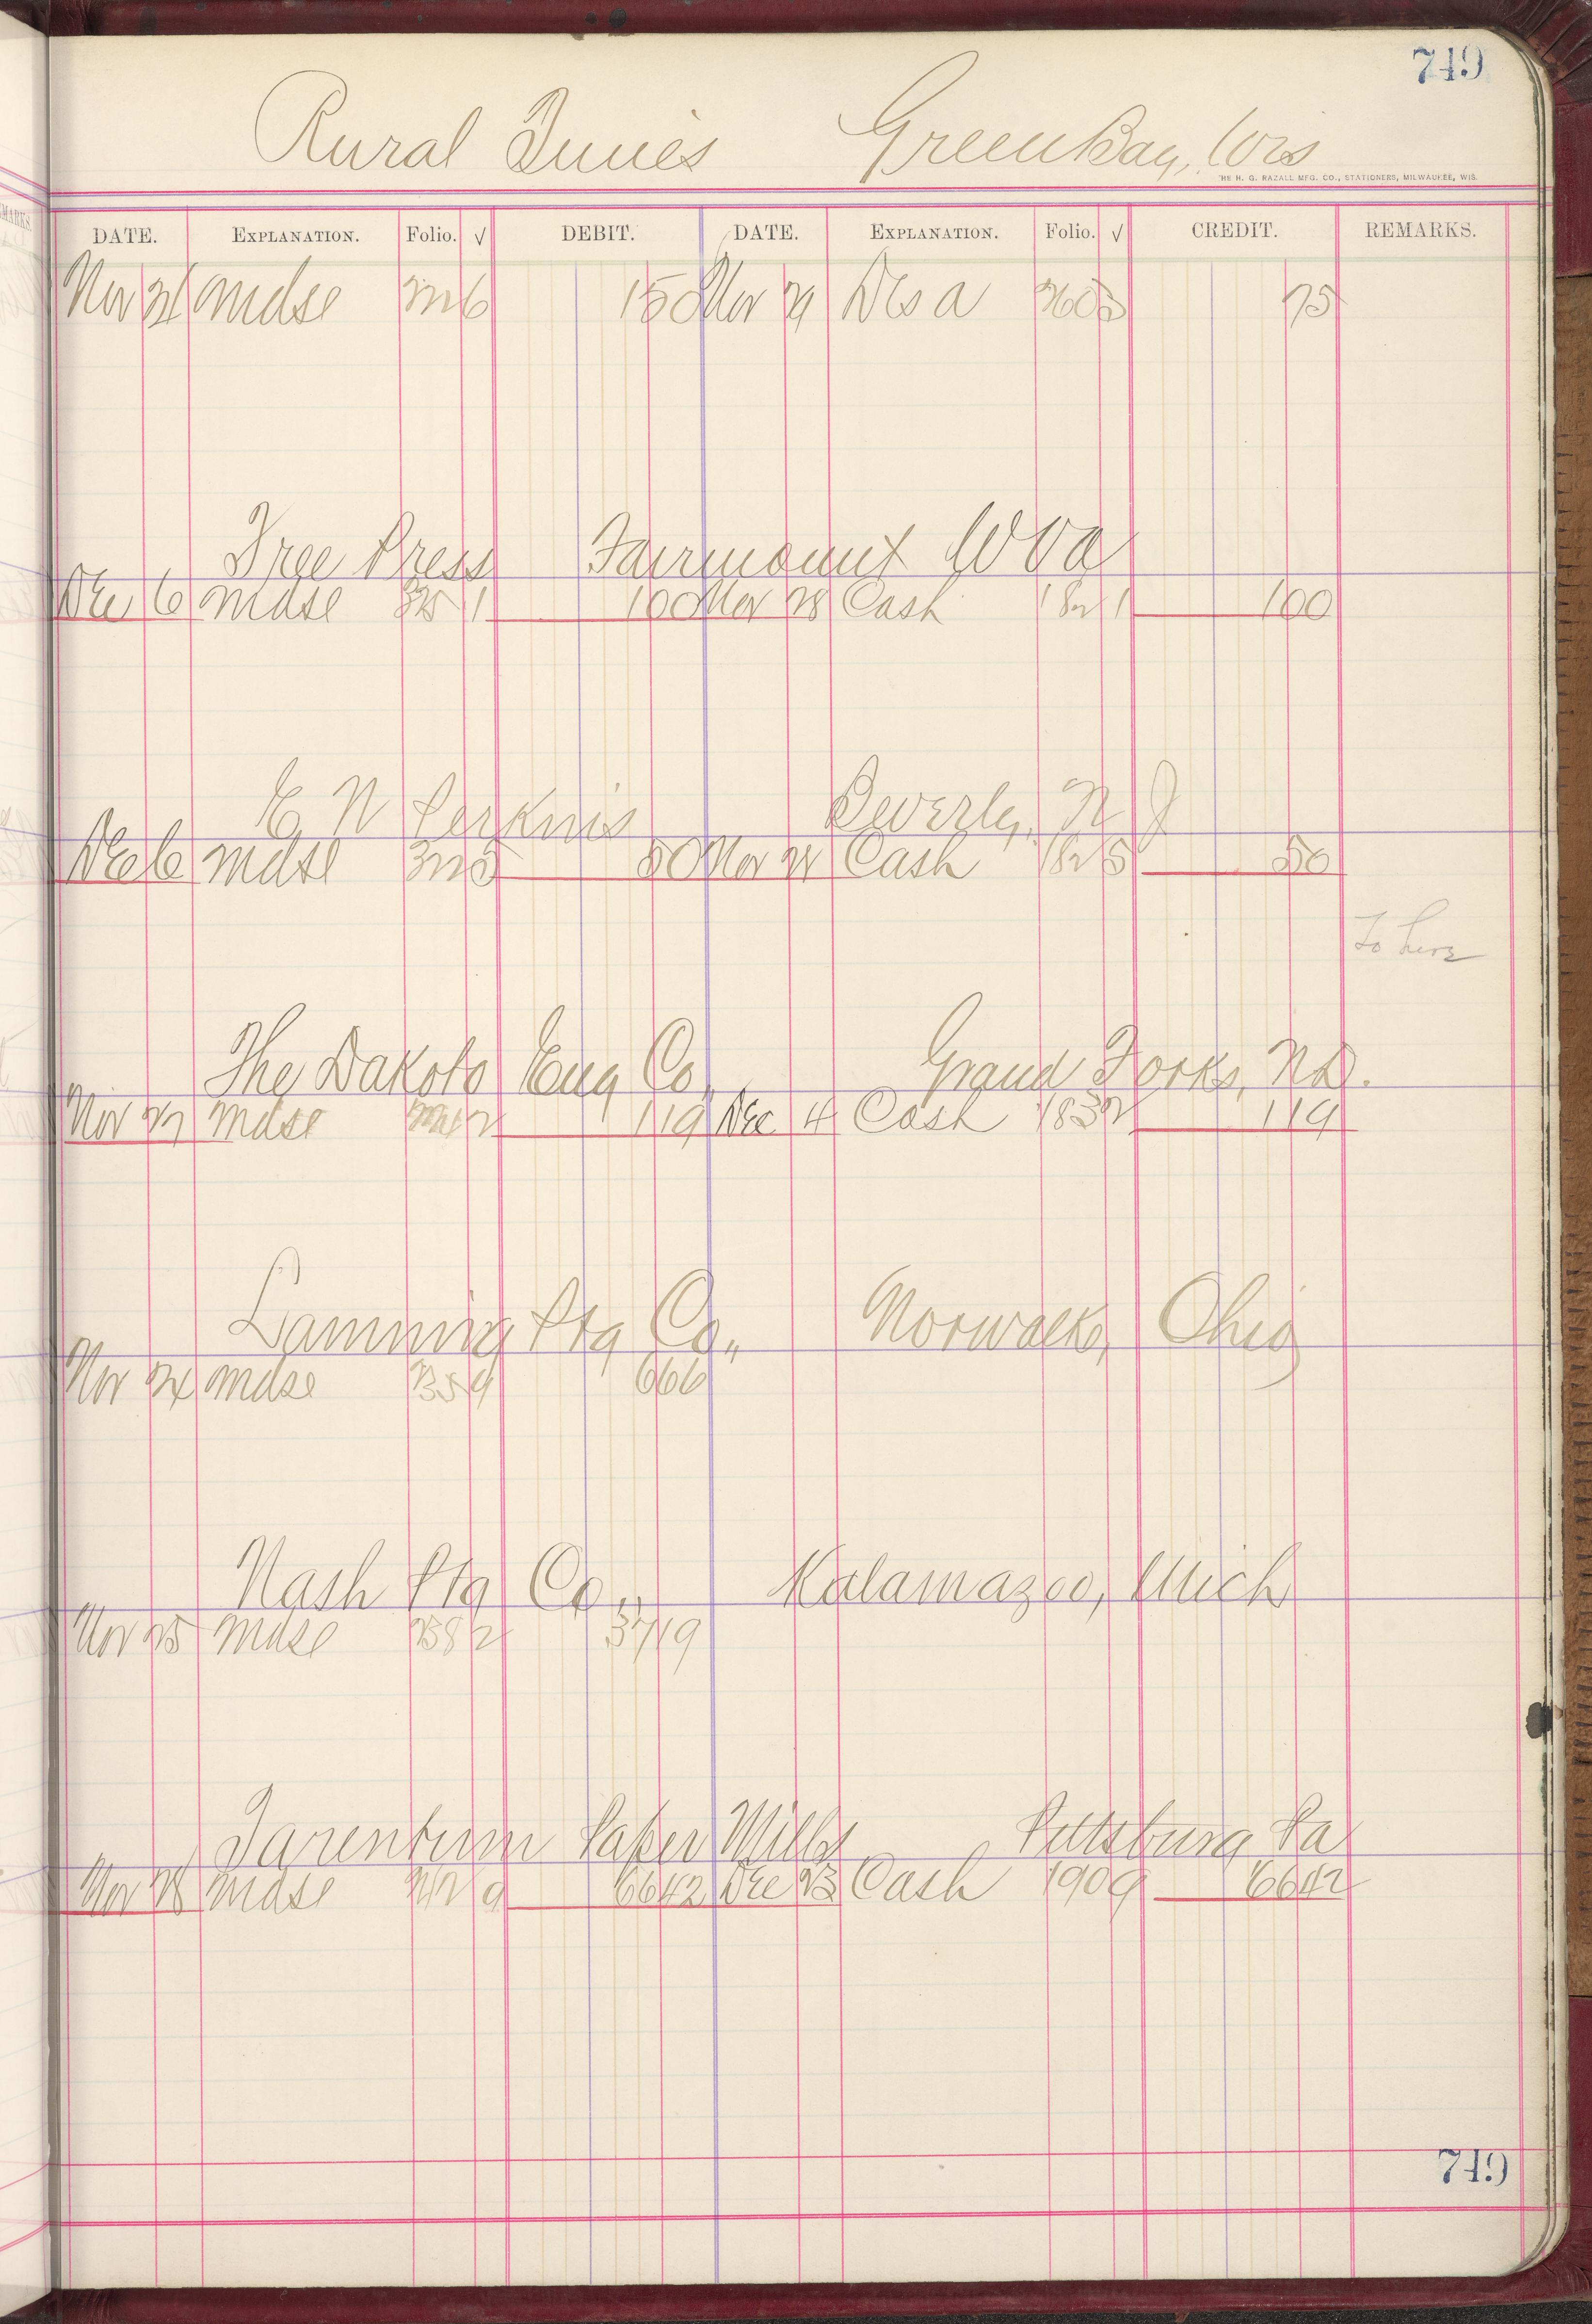 749
Rural Times Green Bay, Wis
THE H. G. RAZALL MFG. CO., STATIONERS, MILWAUKEE, WIS.
DATE. EXPLANATION. Folio. √ DEBIT. DATE. EXPLANATION. Folio. √ CREDIT. REMARKS.
Nov 21 Mdse 2226 150 Nov 29 Disa 2603 75
Free Press Fairmount W Va
Dec 6 Mdse 3251 100 Nov 28 Cash 1821 100
E N Perkins Beverly, N J
Dec 6 Mdse 50 Nov Cash 1825 50
To here
The Dakota Eng Co., Grand Forks, N.D.
Nov 22 Mdse 119 Dec 4 Cash 1832 119
Lamming Ptg Co., Norwalk, Ohio
Nov 24 Mdse 2359 666
Nash Ptg Co., Kalamazoo, Mich
Nov 25 Mdse 2382 3719
Tarentum Paper Mills Pittsburg Pa
Nov 28 Mdse 6642 Dec 23 Cash 1909 6642
749